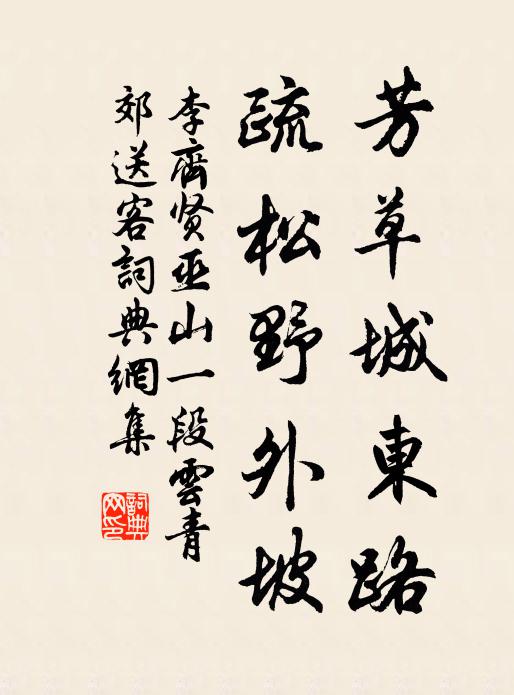 芳草城東路
疏松野外坡
李齊贤巫山一段雲青
郊送客詞典網集
詞典网印